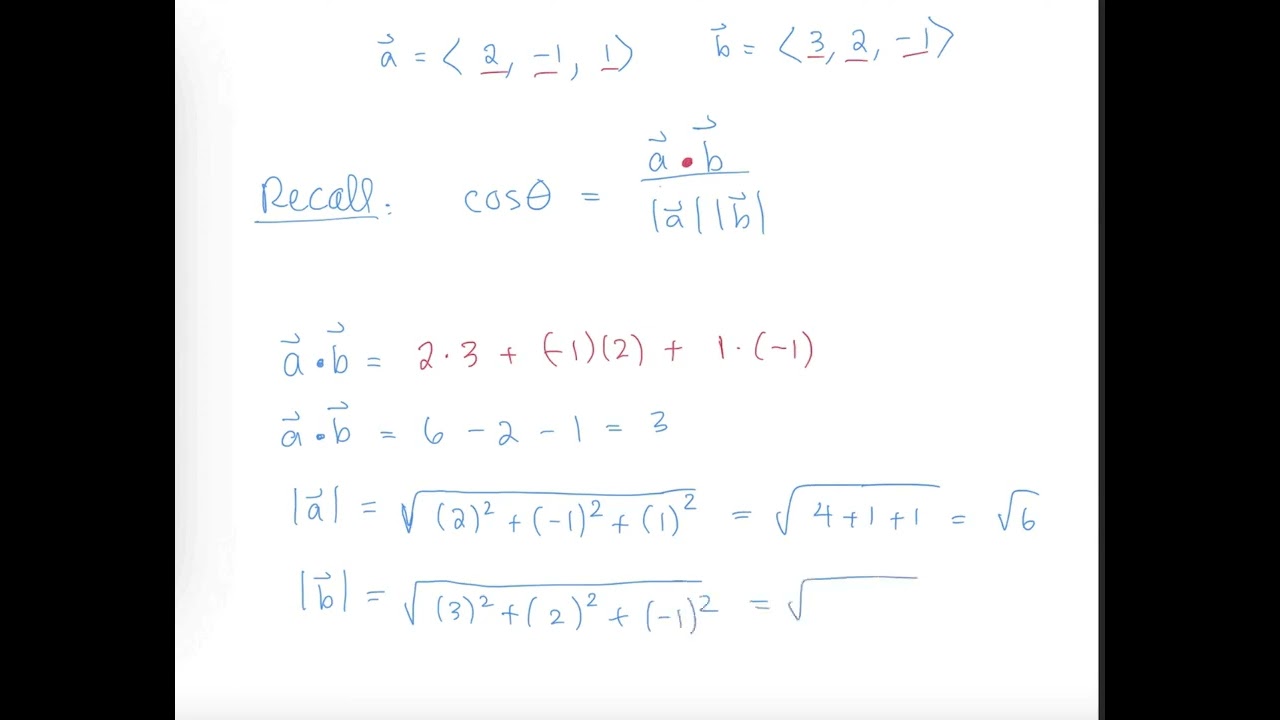 a⃗ = ⟨ 2, -1, 1⟩ b⃗ = ⟨3, 2, -1⟩
Recall: cosθ = a⃗ • b⃗ / |a⃗| |b⃗|
a⃗ • b⃗ = 2 · 3 + (-1)(2) + 1 · (-1)
a⃗ • b⃗ = 6 - 2 - 1 = 3
|a⃗| = √((2)² + (-1)² + (1)²) = √(4 + 1 + 1) = √6
|b⃗| = √((3)² + (2)² + (-1)²) = √